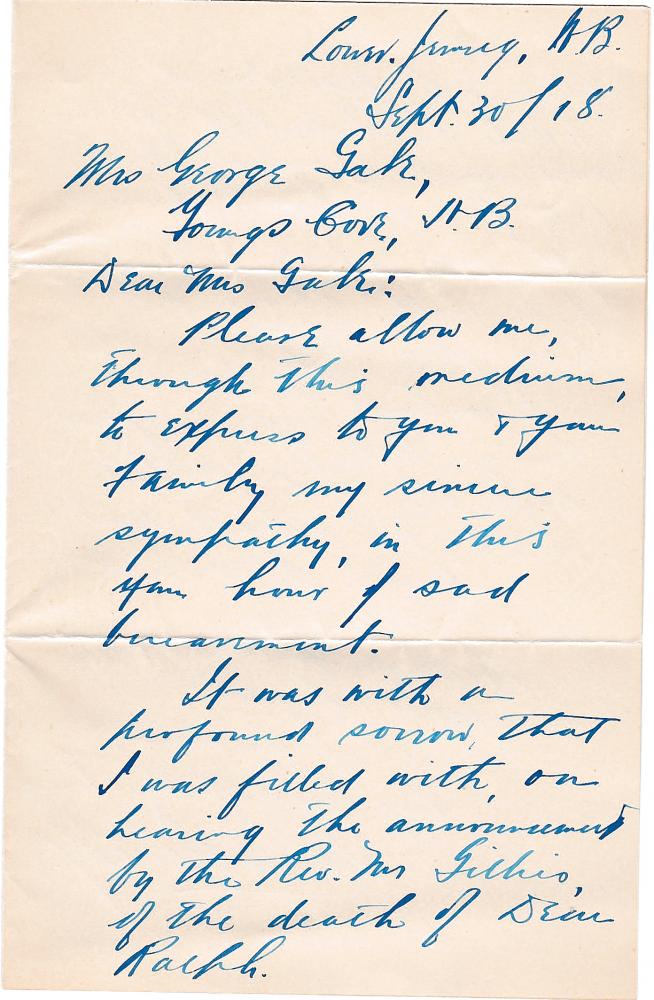 Lower Jemseg, N.B.
Sept. 30/18.
Mrs George Gale,
Youngs Cove, N.B.
Dear Mrs Gale:
Please allow me,
through this medium,
to express to you & your
family my sincere
sympathy, in this
your hour of sad
bereavement.
It was with a
profound sorrow, that
I was filled with, on
hearing the announcement
by the Rev. Mr Gillies,
of the death of Dear
Ralph.